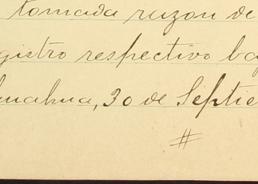 tomada razon de
gistro respectivo ba
huahua, 30 de Septie
#